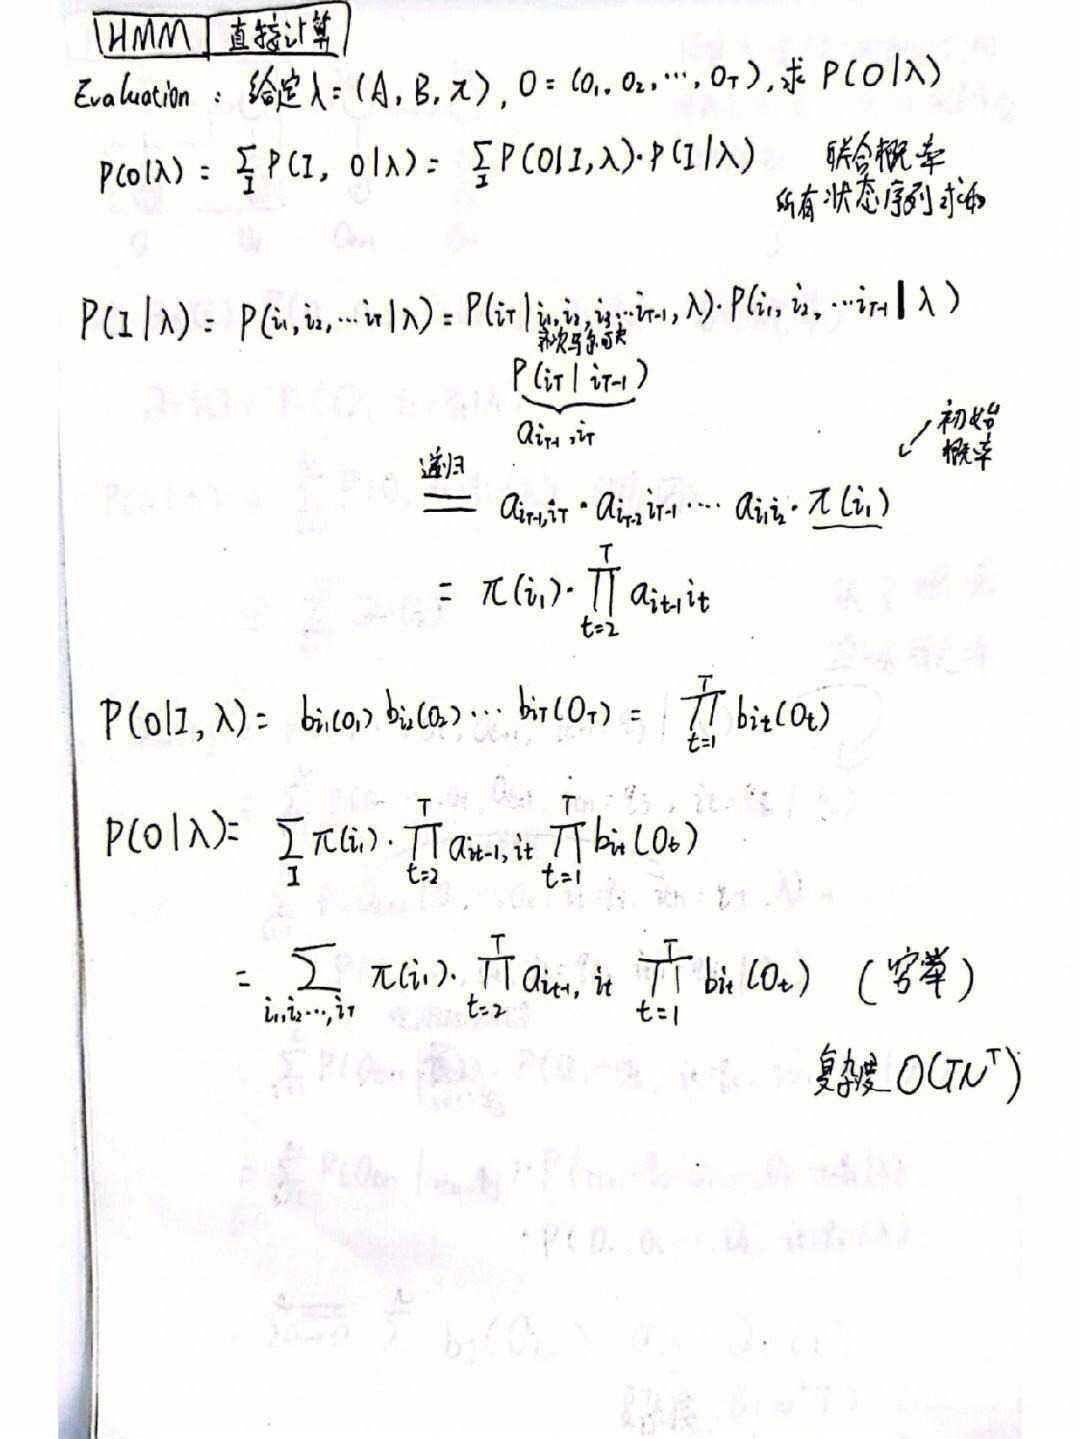 HMM 直接计算
Evaluation: 给定λ=(A, B, π), O=(o₁, o₂, ⋯, o_T), 求 P(O|λ)
P(O|λ) = Σ_I P(I, O|λ) = Σ_I P(O|I, λ)·P(I|λ) 联合概率
所有状态序列求和
P(I|λ) = P(i₁, i₂, ⋯ i_T|λ) = P(i_T | i₁, i₂, i₃ ⋯ i_{T-1}, λ)·P(i₁, i₂, ⋯ i_{T-1} | λ)
P(i_T | i_{T-1})
a_{i_{T-1}, i_T}
初始
概率
递归
= a_{i_{T-1}, i_T} · a_{i_{T-2} i_{T-1}} ⋯ a_{i₁ i₂} · π(i₁)
= π(i₁)· ∏_{t=2}^{T} a_{i_{t-1} i_t}
P(O|I, λ) = b_{i₁}(o₁) b_{i₂}(o₂) ⋯ b_{i_T}(O_T) = ∏_{t=1}^{T} b_{i_t}(O_t)
P(O|λ) = Σ_I π(i₁)· ∏_{t=2}^{T} a_{i_{t-1}, i_t} ∏_{t=1}^{T} b_{i_t}(O_t)
= Σ_{i₁, i₂ ⋯, i_T} π(i₁)· ∏_{t=2}^{T} a_{i_{t-1}, i_t} ∏_{t=1}^{T} b_{i_t}(O_t) (穷举)
复杂度 O(TN^T)